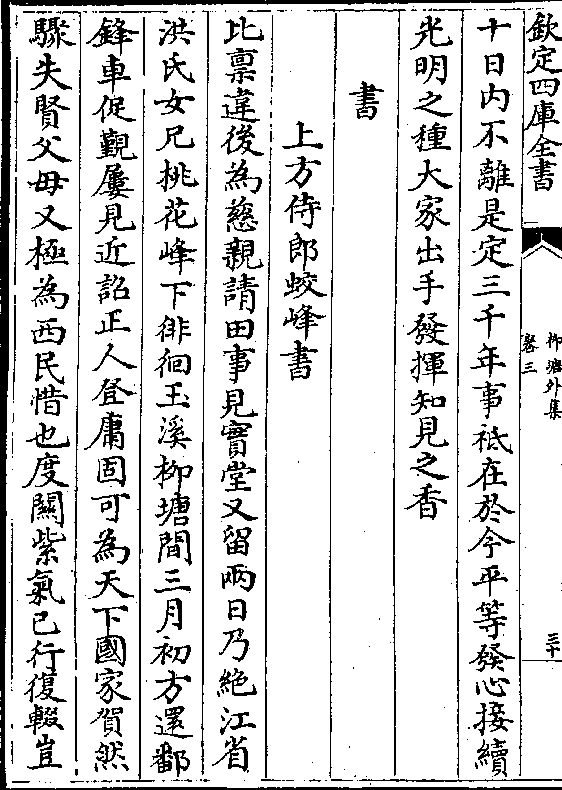 欽定四庫全書
柳塘外集
卷三
三十
十日内不離是定三千年事祗在於今平等發心接續
光明之種大家出手發揮知見之香
書
上方侍郎蛟峰書
比禀違後為慈親請田事見實堂又留兩日乃絶江省
洪氏女兄桃花峰下徘徊玉溪柳塘間三月初方還鄱
鋒車促覲屢見近詔正人登庸固可為天下國家賀然
驟失賢父母又極為西民惜也度關紫氣已行復輟豈